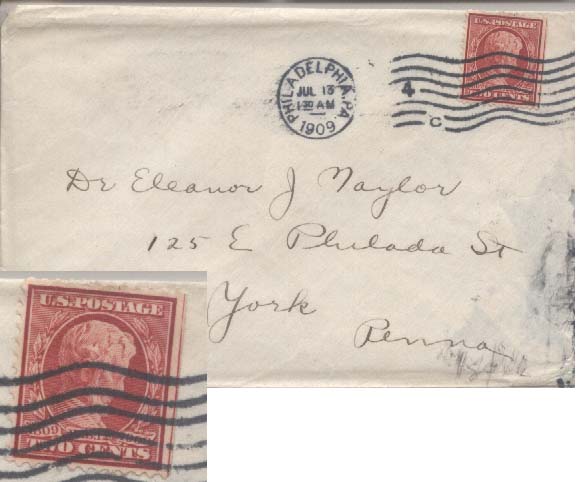 U.S. POSTAGE
TWO CENTS
PHILADELPHIA, PA
JUL 13
1 30 AM
1909
4
C
Dr Eleanor J Naylor
125 E Philada St
York
Penna
U.S. POSTAGE
1809
TWO CENTS